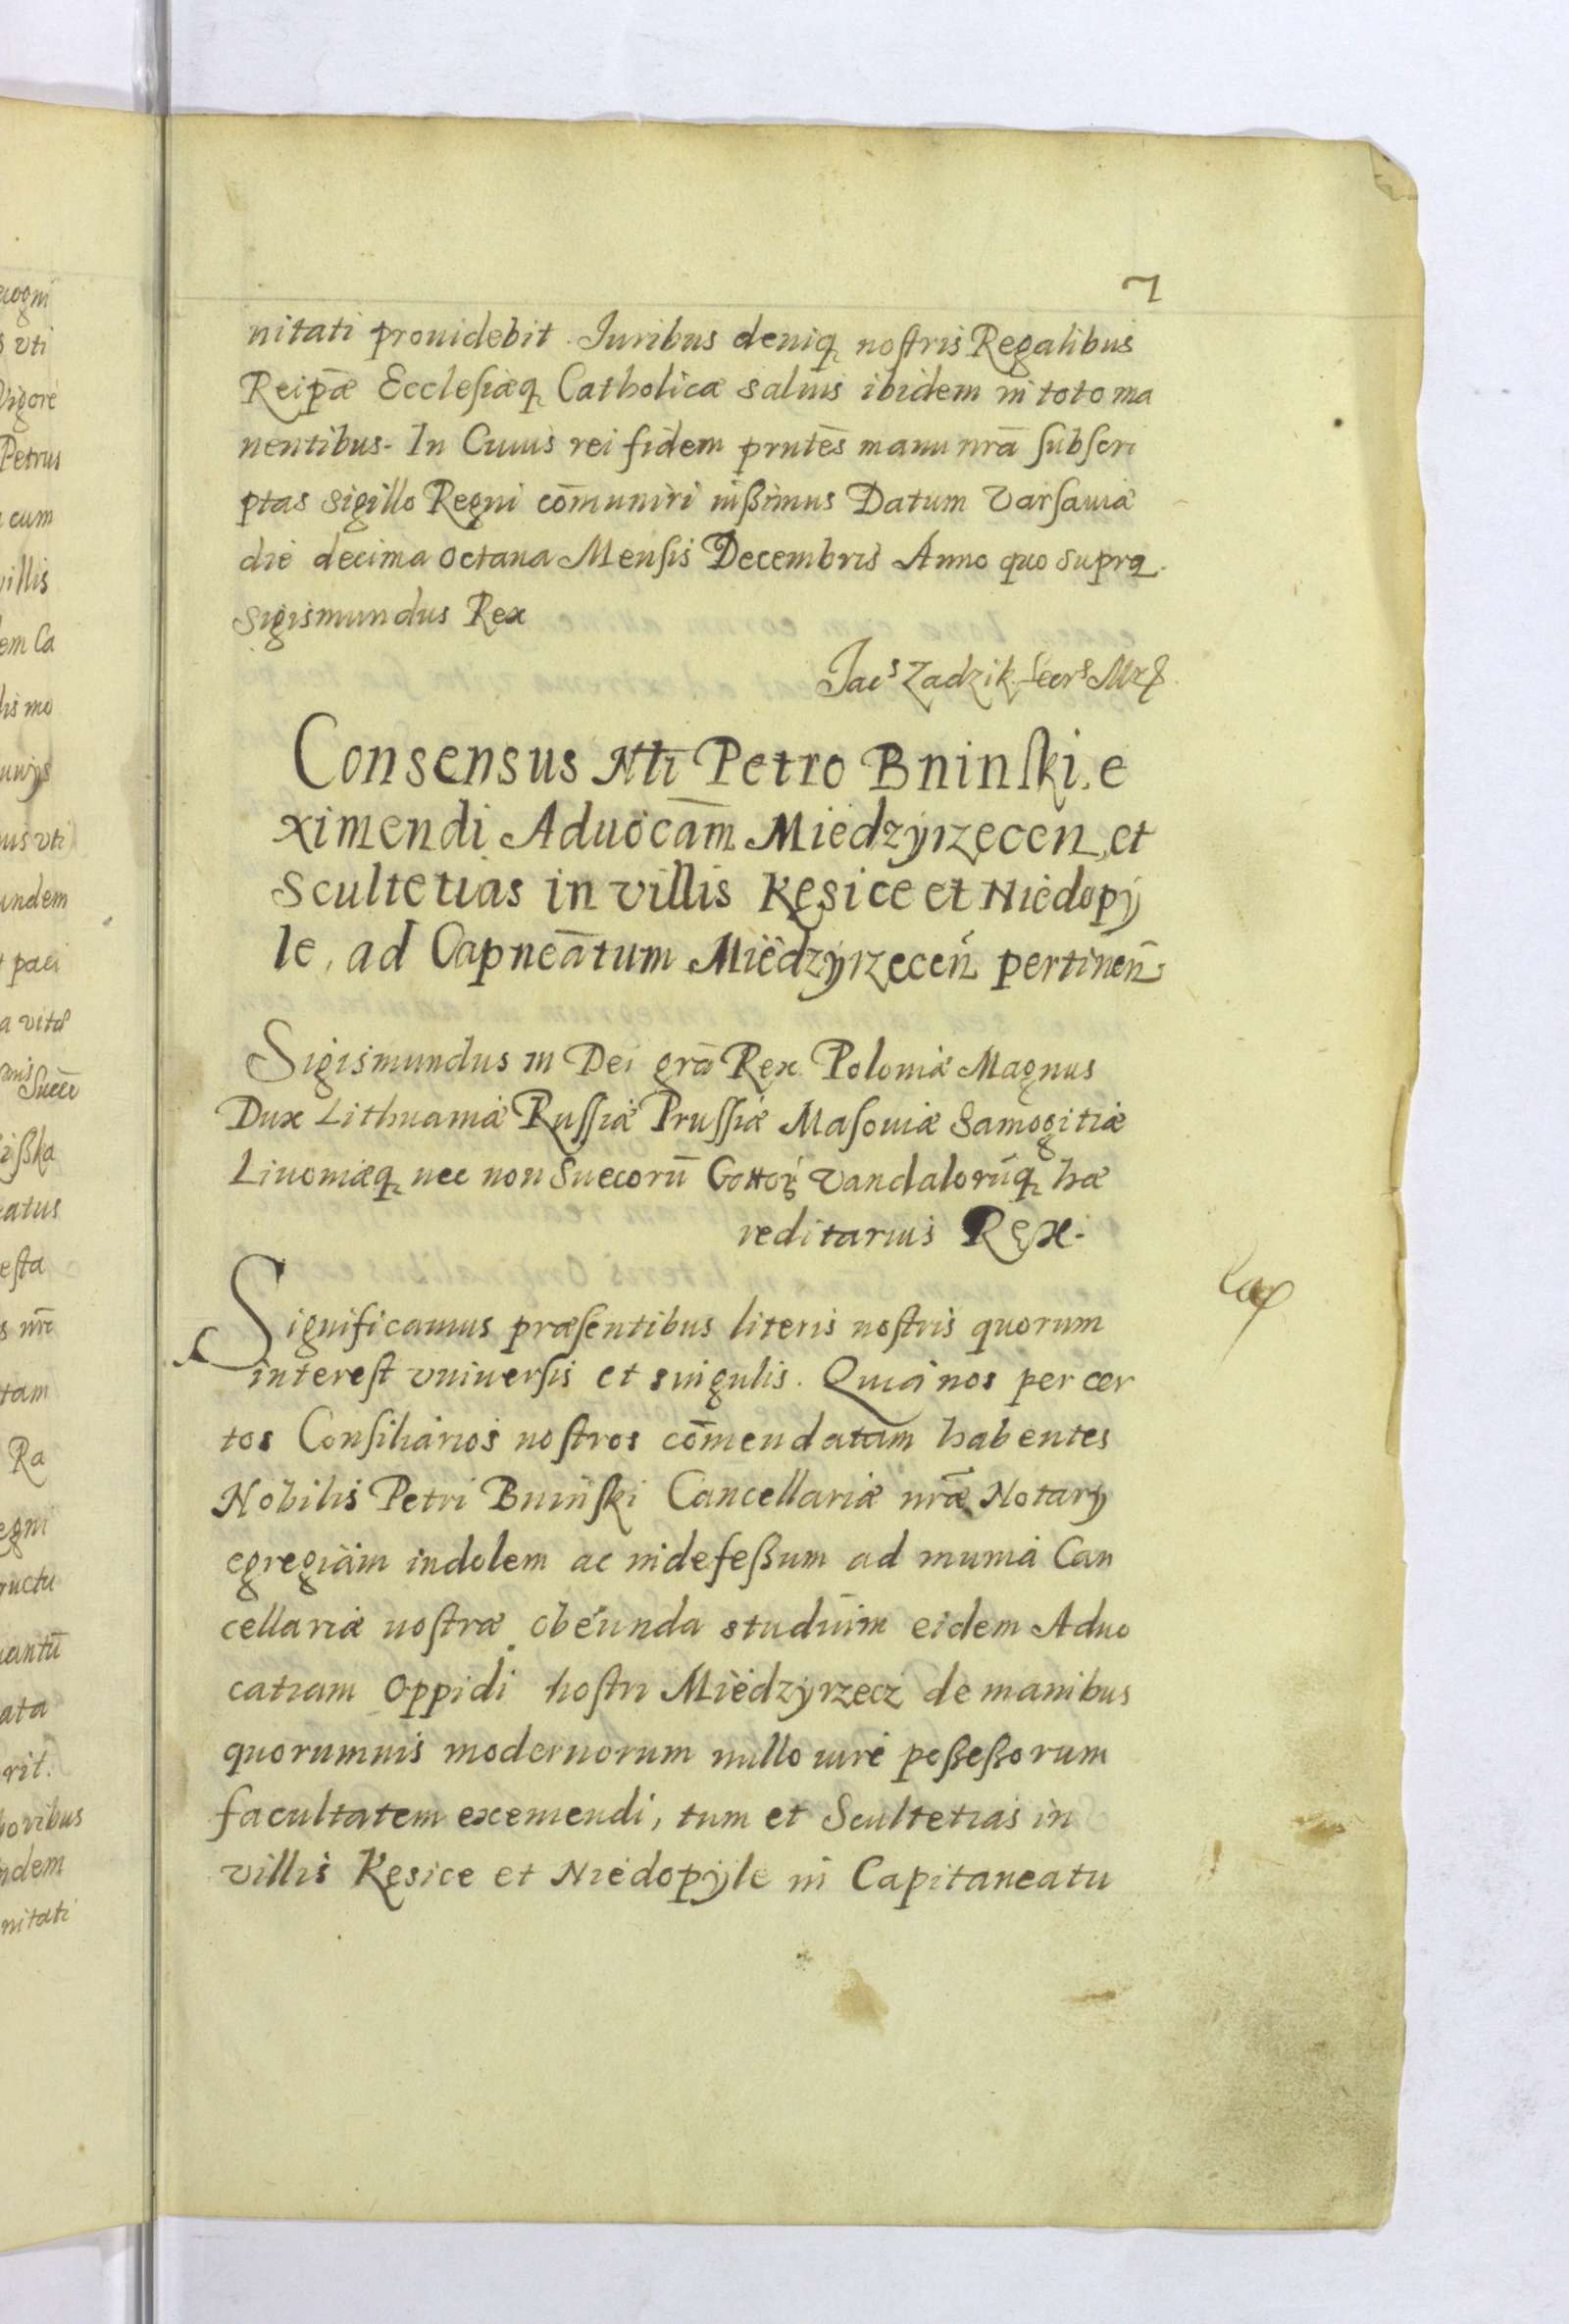 7
nitati prouidebit. Iuribus deniq nostris Regalibus
Reipae Ecclesiaeq Catholicae saluis ibidem in toto ma
nentibus. In Cuius rei fidem pntes manu nra subscri
ptas sigillo Regni comuniri iussimus Datum Varsauiae
die decima octaua Mensis Decembris Anno quo supra.
Sigismundus Rex
Jacs Zadzik Secrs
Consensus Nti Petro Bninski, e
ximendi Aduocam Miedzyrzecen, et
Scultetias in villis Kęsice et Niedopy
le, ad Capneatum Miedzyrzecen pertinen:
Sigismundus III Dei gra Rex Poloniae Magnus
Dux Lithuaniae Russiae Prussiae Masouiae Samogitiae
Liuoniaeq nec non Suecoru Gottor Vandaloruq hae
reditarius Rex.
Significamus praesentibus literis nostris quorum
interest vniuersis et singulis. Quia nos per cer
tos Consiliarios nostros comendatam habentes
Nobilis Petri Bninski Cancellariae nrae Notary
egregiam indolem ac indefessum ad munia Can
cellariae nostrae obeunda studium eidem Aduo
catiam Oppidi nostri Miedzyrzecz de manibus
quorumuis modernorum nullo iure possessorum
facultatem exemendi, tum et Scultetias in
villis Kesice et Niedopyle in Capitaneatu